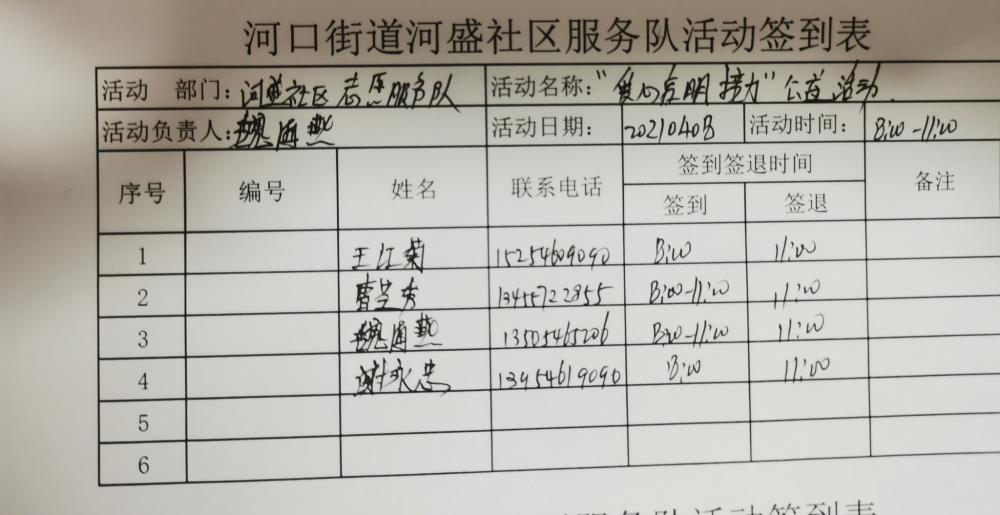 河口街道河盛社区服务队活动签到表
活动 部门: 河盛社区志愿服务队 活动名称: “爱心 接力”公益活动.
活动负责人: 魏海燕 活动日期: 20210408 活动时间: 8:00-11:00
序号 编号 姓名 联系电话 签到签退时间 备注
签到 签退
1 王红菊 15254609090 8:00 11:00
2 曹芝秀 13455722855 8:00-11:00 11:00
3 魏海燕 13505465206 8:00-11:00 11:00
4 谢永忠 13954619090 8:00 11:00
5
6
服务队活动签到表